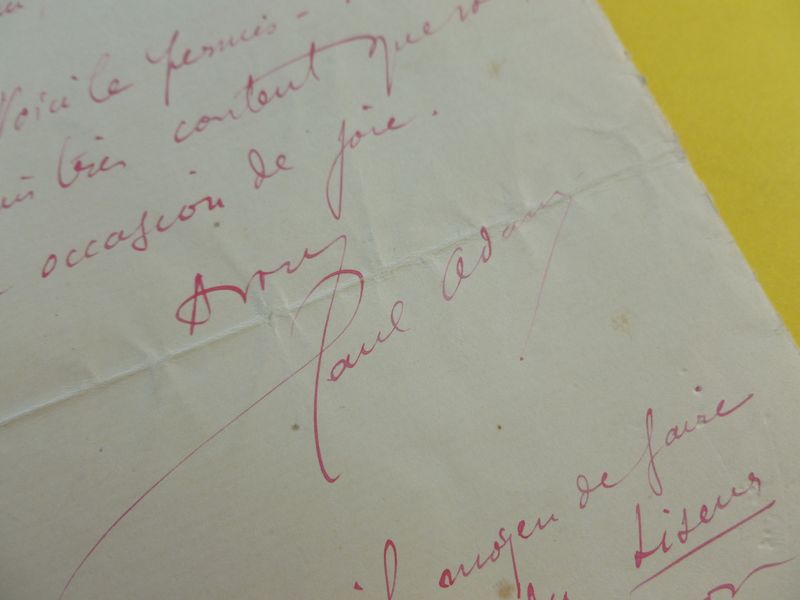 Voici le permis -
bien content que
occasion de joie.
A vous
Paul Adam
il moyen de faire
du Liseur